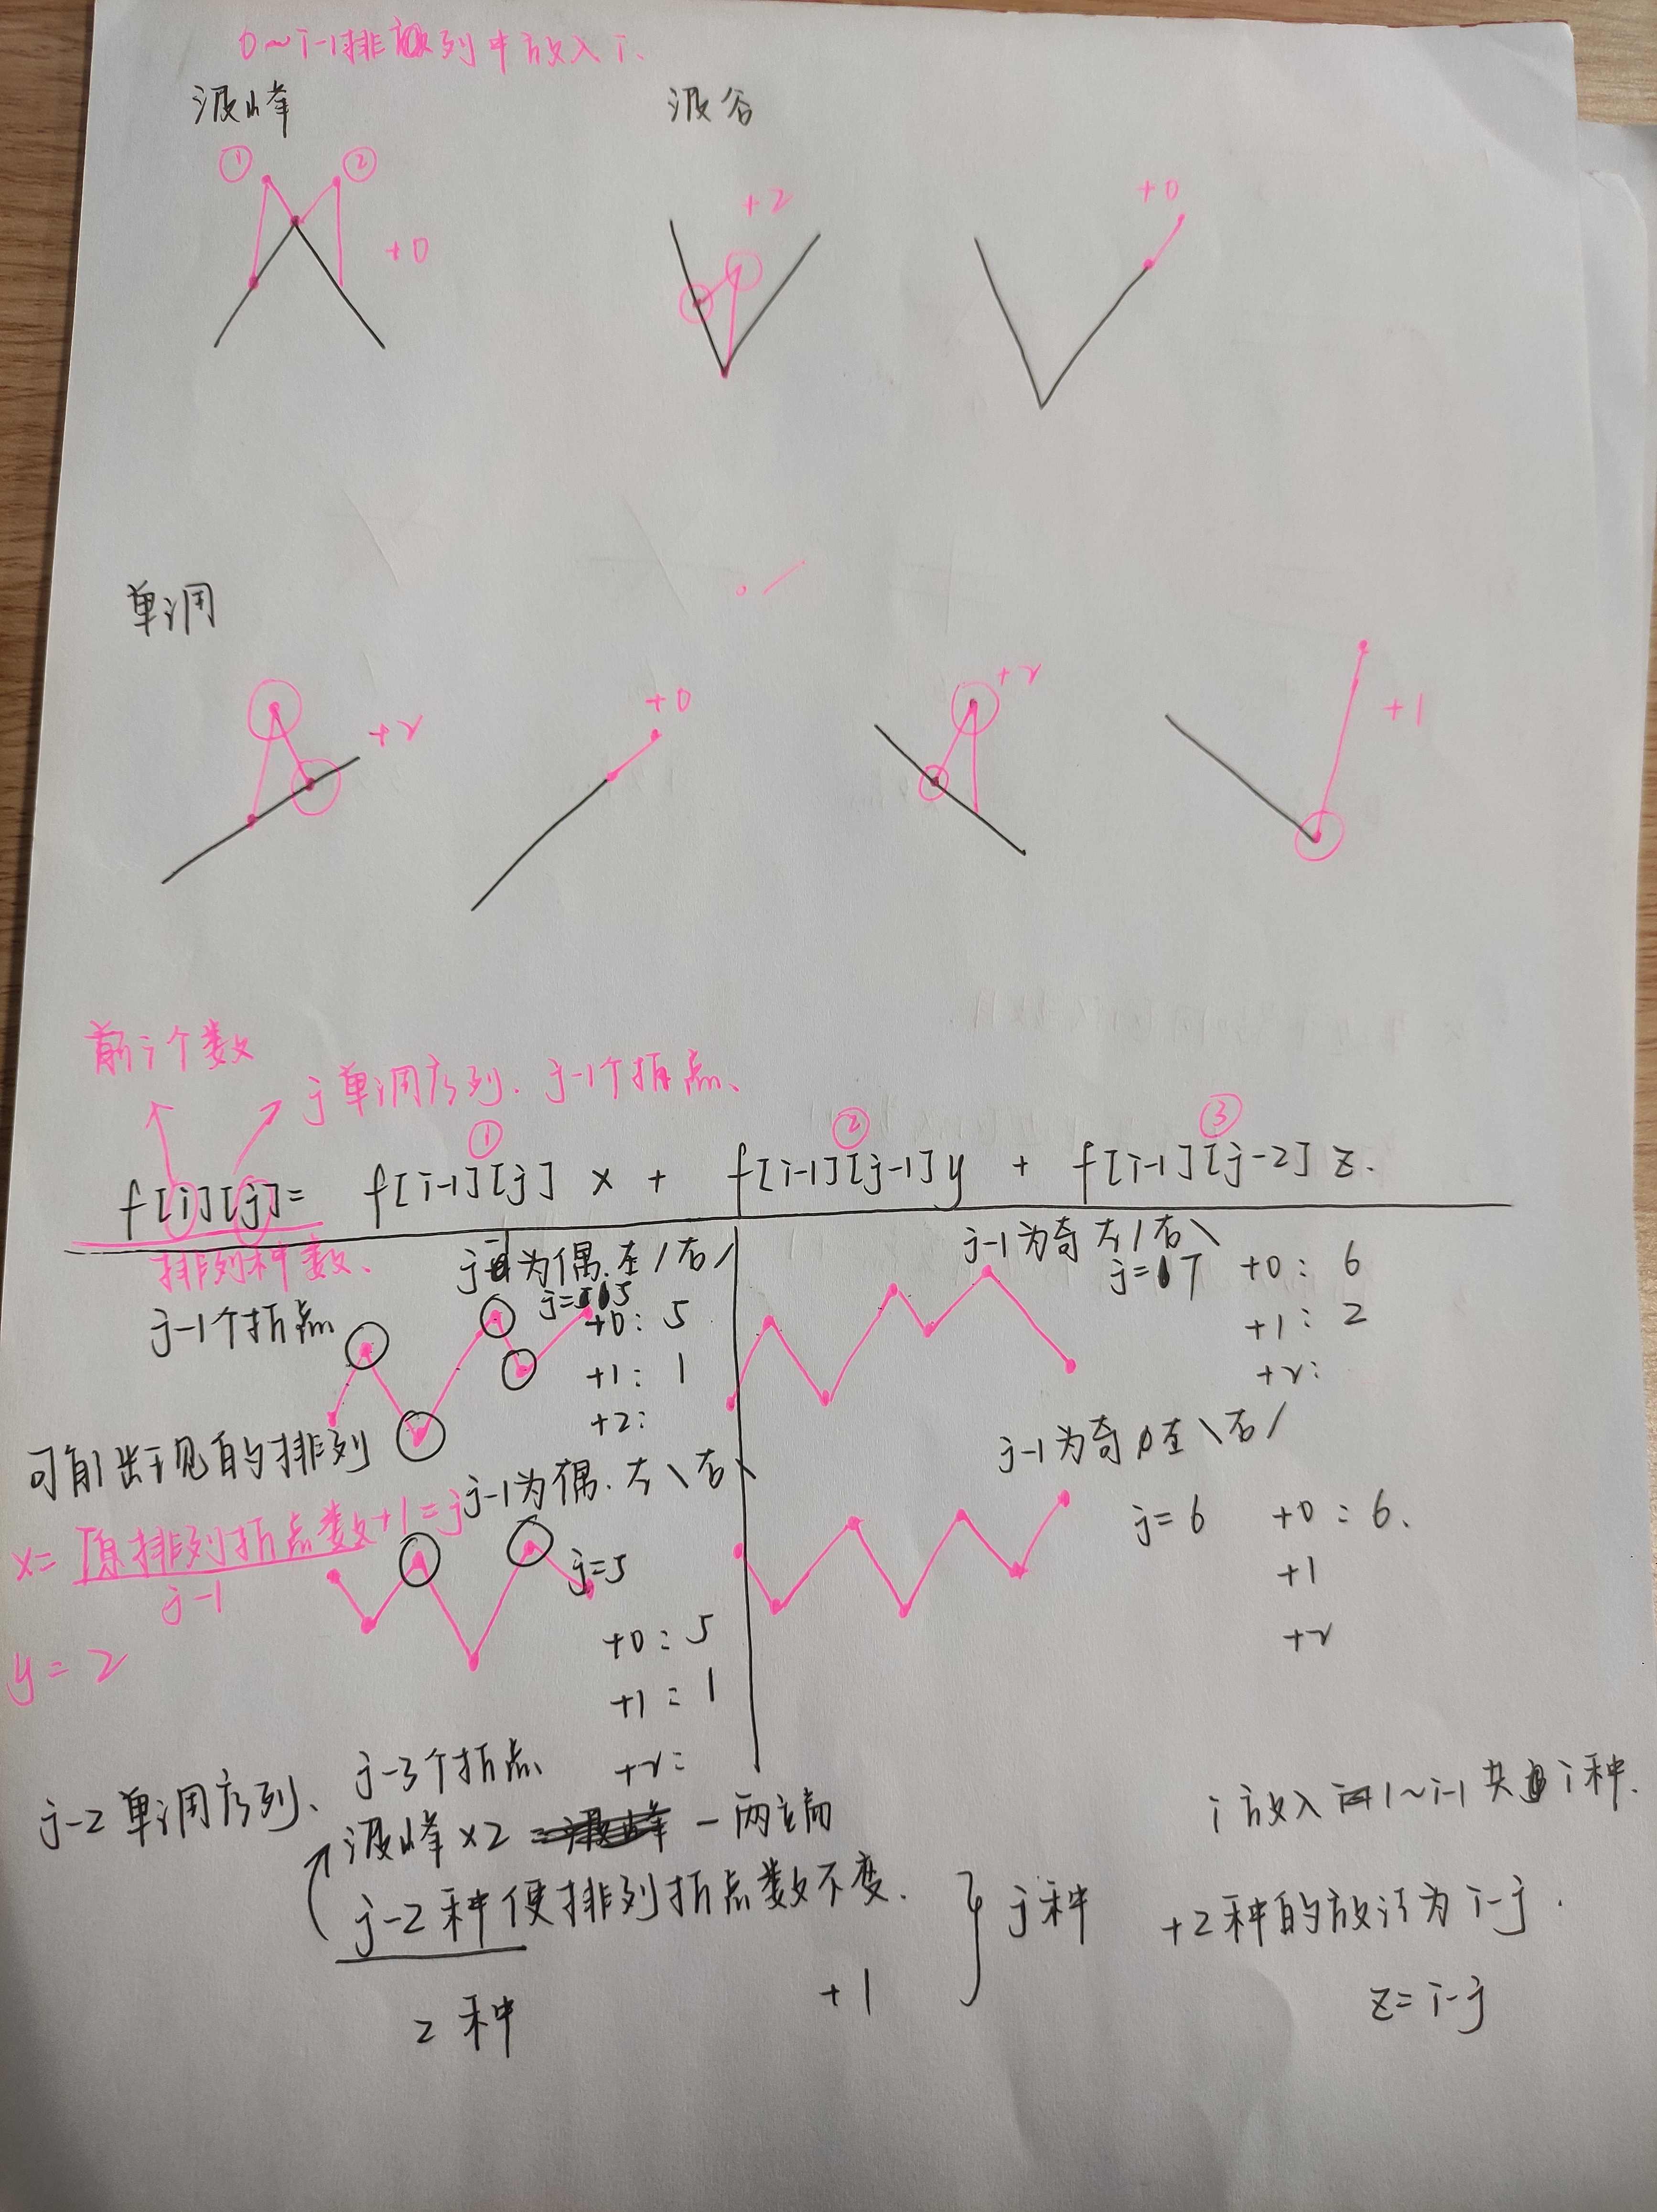 0~i-1排列中放入i.
波峰
波谷
① ②
+0
+2
+0
单调
+2
+0
+2
+1
前i个数
j单调序列. j-1个折点、
① ② ③
f[i][j]= f[i-1][j] x + f[i-1][j-1]y + f[i-1][j-2] z.
排列种数、
j-1个折点
j-1为偶.左/右/
j=5
+0: 5
+1: 1
+2:
j-1为奇 左/右\
j=7
+0: 6
+1: 2
+2:
可能出现的排列
j-1为偶.左\右\
j=5
+0:5
+1:1
+2:
j-1为奇 左\右/
j=6
+0:6.
+1
+2
x=原排列折点数+1=j
j-1
y=2
j-2单调序列、j-3个折点
波峰×2 -两端
j-2种使排列折点数不变.
2种
+1
j种
i放入1~i-1共i种.
+2种的放法为i-j.
z=i-j